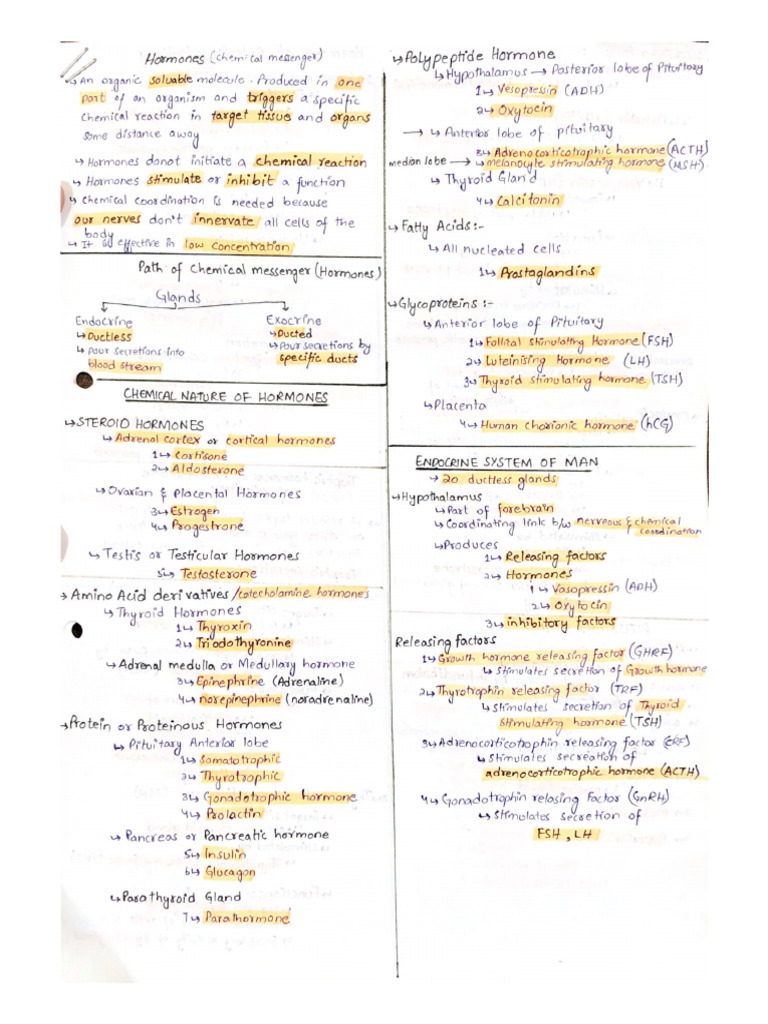 Hormones (chemical messenger)
↳ An organic soluable molecule. Produced in one
part of an organism and triggers a specific
chemical reaction in target tissue and organs
some distance away
↳ Hormones donot initiate a chemical reaction
↳ Hormones stimulate or inhibit a function
↳ Chemical coordination is needed because
our nerves don't innervate all cells of the
body
↳ It is effective in low concentration
Path of chemical messenger (Hormones)
Glands
Endocrine
↳ Ductless
↳ pour secretions into
blood stream
Exocrine
↳ Ducted
↳ Pour secretions by
specific ducts
CHEMICAL NATURE OF HORMONES
↳ STEROID HORMONES
↳ Adrenal cortex or cortical hormones
1↳ Cortisone
2↳ Aldosterone
↳ Ovarian & Placental Hormones
3↳ Estrogen
4↳ Progestrone
↳ Testis or Testicular Hormones
5↳ Testosterone
→ Amino Acid derivatives/catecholamine hormones
↳ Thyroid Hormones
1↳ Thyroxin
2↳ Triodothyronine
↳ Adrenal medulla or Medullary hormone
3↳ Epinephrine (Adrenaline)
4↳ norepinephrine (noradrenaline)
→ Protein or Proteinous Hormones
↳ Pituitary Anterior lobe
1↳ Somatotrophic
2↳ Thyrotrophic
3↳ Gonadotrophic hormone
4↳ Prolactin
↳ Pancreas or Pancreatic hormone
5↳ Insulin
6↳ Glucagon
↳ Parathyroid Gland
7↳ Parathormone
↳ Polypeptide Hormone
↳ Hypothalamus → Posterior lobe of Pituitary
1↳ Vesopressin (ADH)
2↳ Oxytocin
→ ↳ Anterior lobe of pituitary
3↳ Adrenocorticotrophic hormone (ACTH)
median lobe → ↳ melanocyte stimulating hormone (MSH)
↳ Thyroid Gland
4↳ Calcitonin
↳ Fatty Acids:-
↳ All nucleated cells
1↳ Prostaglandins
↳ Glycoproteins :-
↳ Anterior lobe of Pituitary
1↳ Follital stimulating Hormone (FSH)
2↳ Luteinising Hormone (LH)
3↳ Thyroid stimulating hormone (TSH)
↳ Placenta
4↳ Human chorionic hormone (hCG)
ENDOCRINE SYSTEM OF MAN
→ 20 ductless glands
↳ Hypothalamus
↳ Part of forebrain
↳ Coordinating link b/w nerveous & chemical
coordination
↳ Produces
1↳ Releasing factors
2↳ Hormones
1↳ Vasopressin (ADH)
2↳ Oxytocin
3↳ inhibitory factors
Releasing factors
1↳ Growth hormone releasing factor (GHRF)
↳ stimulates secretion of Growth hormone
2↳ Thyrotrophin releasing factor (TRF)
↳ Stimulates secretion of Thyroid
Stimulating hormone (TSH)
3↳ Adrenocorticotrophin releasing factor (CRF)
↳ Stimulates secreation of
adrenocorticotrophic hormone (ACTH)
4↳ Gonadotrophin relasing Factor (GnRH)
↳ Stimulates secretion of
FSH, LH